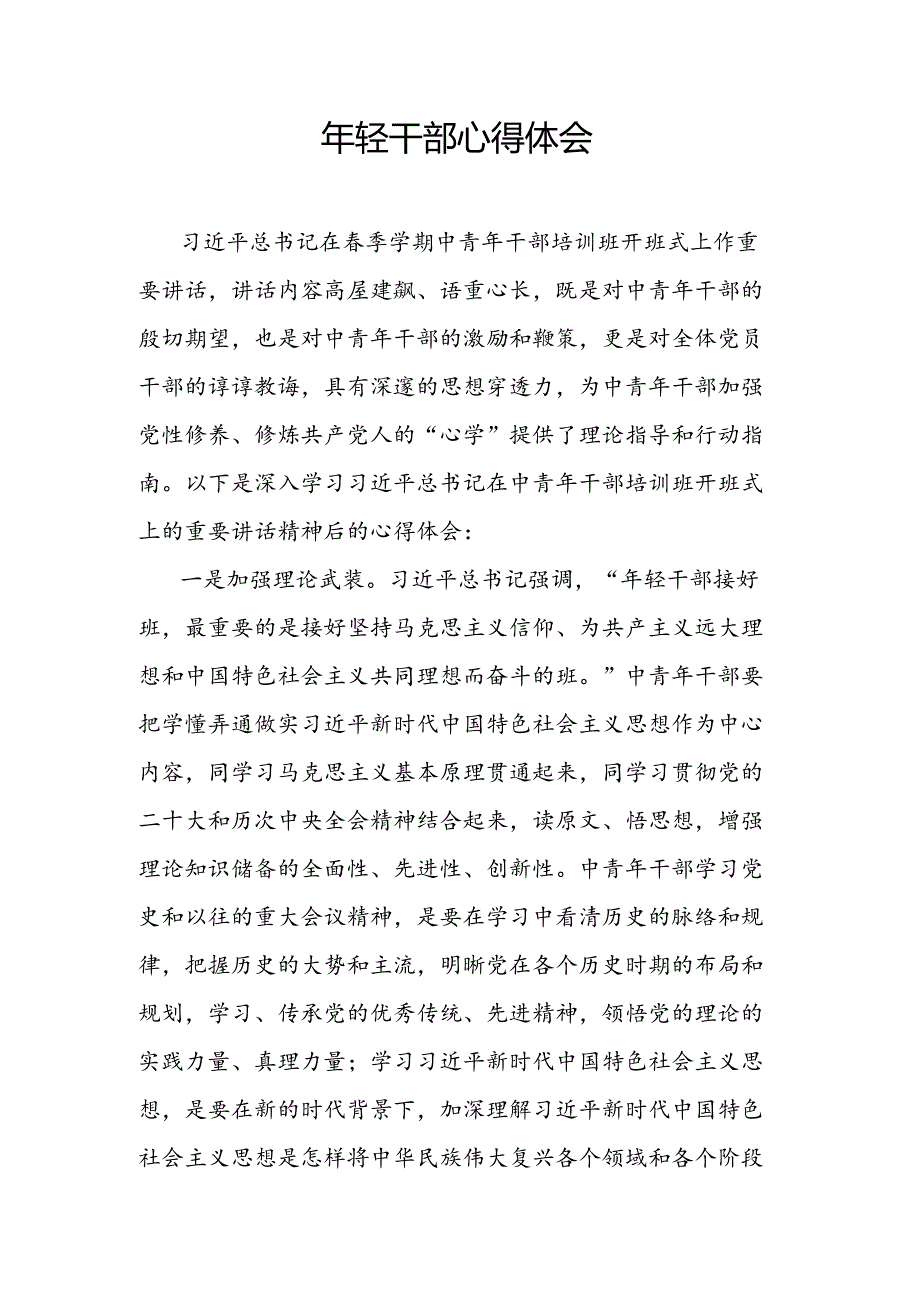 年轻干部心得体会
习近平总书记在春季学期中青年干部培训班开班式上作重
要讲话，讲话内容高屋建瓴、语重心长，既是对中青年干部的
殷切期望，也是对中青年干部的激励和鞭策，更是对全体党员
干部的谆谆教诲，具有深邃的思想穿透力，为中青年干部加强
党性修养、修炼共产党人的“心学”提供了理论指导和行动指
南。以下是深入学习习近平总书记在中青年干部培训班开班式
上的重要讲话精神后的心得体会：
一是加强理论武装。习近平总书记强调，“年轻干部接好
班，最重要的是接好坚持马克思主义信仰、为共产主义远大理
想和中国特色社会主义共同理想而奋斗的班。”中青年干部要
把学懂弄通做实习近平新时代中国特色社会主义思想作为中心
内容，同学习马克思主义基本原理贯通起来，同学习贯彻党的
二十大和历次中央全会精神结合起来，读原文、悟思想，增强
理论知识储备的全面性、先进性、创新性。中青年干部学习党
史和以往的重大会议精神，是要在学习中看清历史的脉络和规
律，把握历史的大势和主流，明晰党在各个历史时期的布局和
规划，学习、传承党的优秀传统、先进精神，领悟党的理论的
实践力量、真理力量；学习习近平新时代中国特色社会主义思
想，是要在新的时代背景下，加深理解习近平新时代中国特色
社会主义思想是怎样将中华民族伟大复兴各个领域和各个阶段